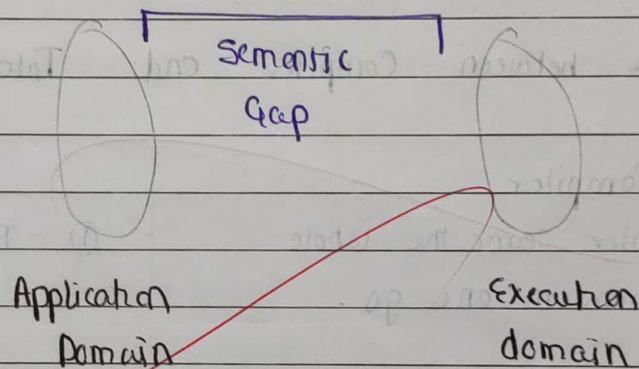 Sementic
Gap
Application
Domain
Execution
domain